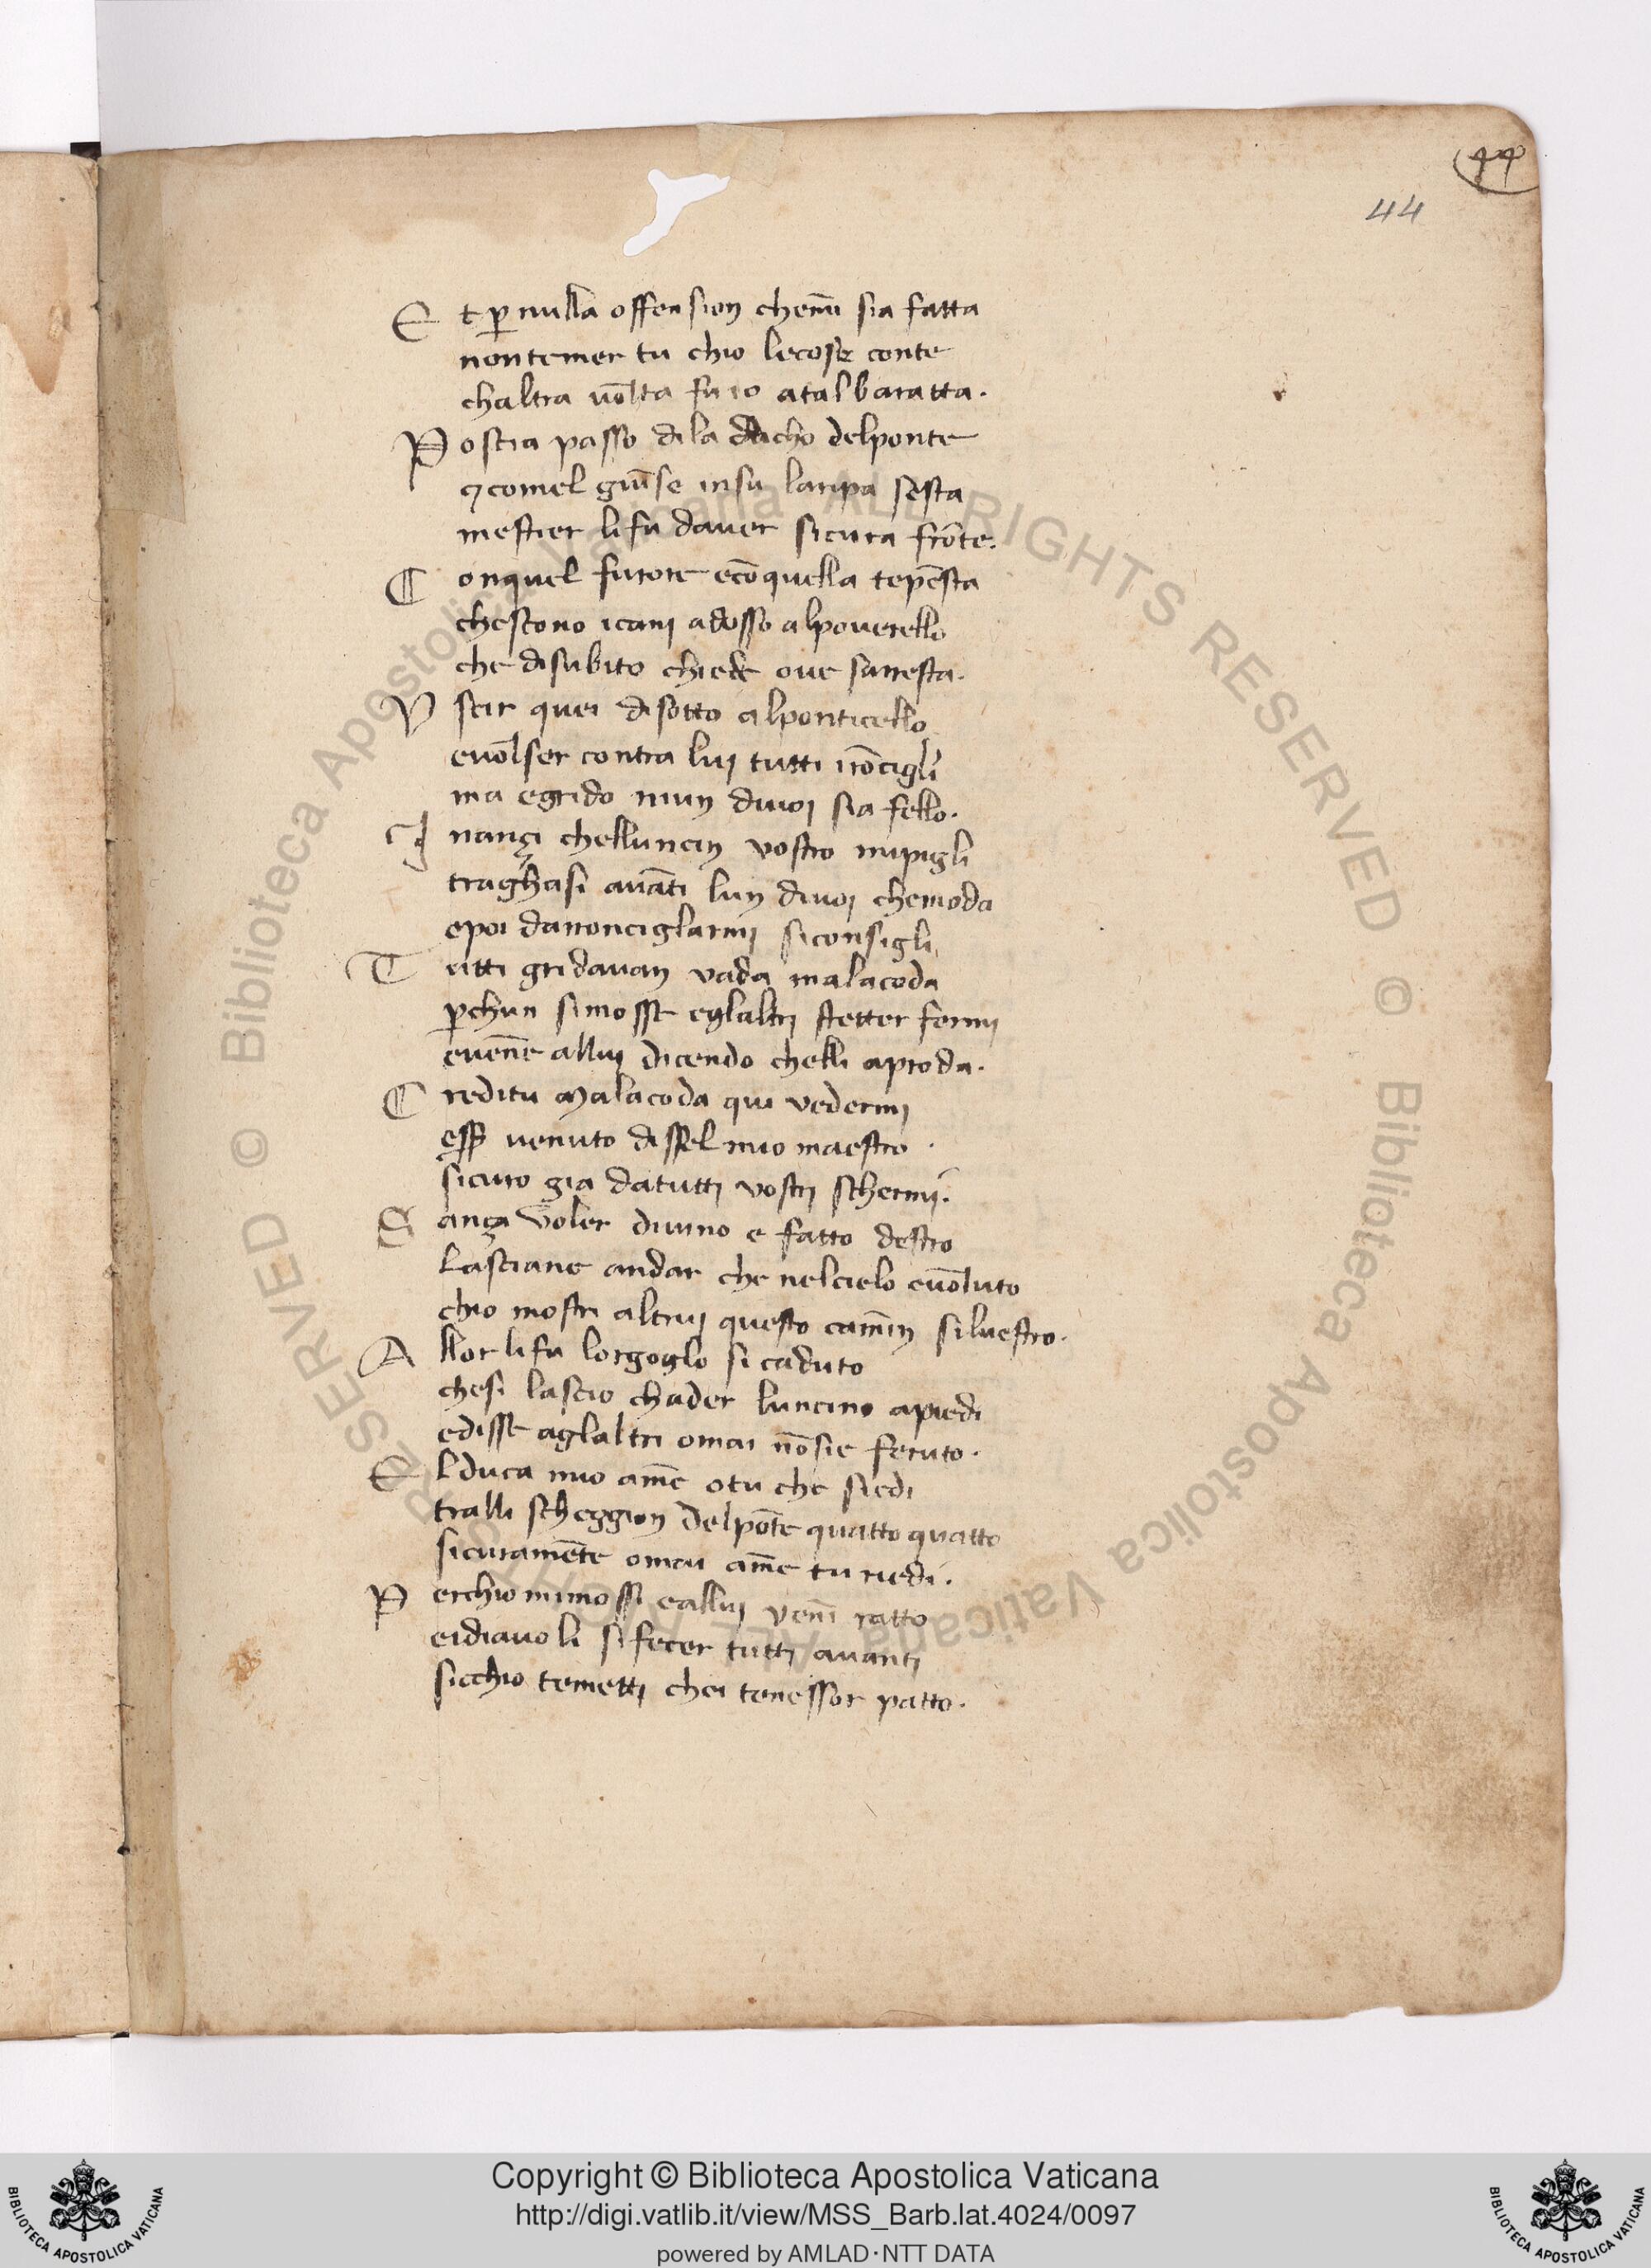 44
44
Et ꝑ nulla offension chem̄i sia fatta
non temer tu chio lecose conte
chaltra uōlta fu io atal baratta.
Poscia passo dila dacho delponte
⁊ comel giūse insu laripa sesta
mestier li fu dauer sicura frōte.
Conquel furore ecōquella tepēsta
chescono icanj adosso alpouerello
che disubito chiede oue sarresta.
Vscir quei disotto alponticello
euōlser contra luj tutti irōcigli
ma egrido niun diuoj sia fello.
Inançi chelluncin vostro mipigli
traghasi auāti lun diuoj chemoda
epoi darronciglarmj siconsigli
Tutti gridauan vada malacoda
ꝑchun simosse eglaltrj stetter fermj
euēne alluj dicendo chelli aproda.
Creditu malacoda qui vedermj
eẜẜ venuto dissel mio maestro.
sicuro gia datuttj vostrj schermi.
Sança voler diuino e fatto destro
Lasciane andar che nelcielo euōluto
chio mostri altruj questo camīn siluestro.
Allor li fu lorgoglo si caduto
chesi lascio chader luncino apiedi
edisse aglaltri omai nōsie feruto.
Elduca mio am̄e otu che siedi
tralli scheggion delpōte quatto quatto
sicuramēte omai am̄e tu riedi.
Perchio mimossi ealluj venī ratto
eidiauoli si fecer tuttj auantj
sicchio temettj chei tenessor patto.
© Biblioteca Apostolica Vaticana ALL RIGHTS RESERVED © Biblioteca Apostolica Vaticana ALL RIGHTS RESERVED
Copyright © Biblioteca Apostolica Vaticana
http://digi.vatlib.it/view/MSS_Barb.lat.4024/0097
powered by AMLAD·NTT DATA
BIBLIOTECA APOSTOLICA VATICANA
BIBLIOTECA APOSTOLICA VATICANA